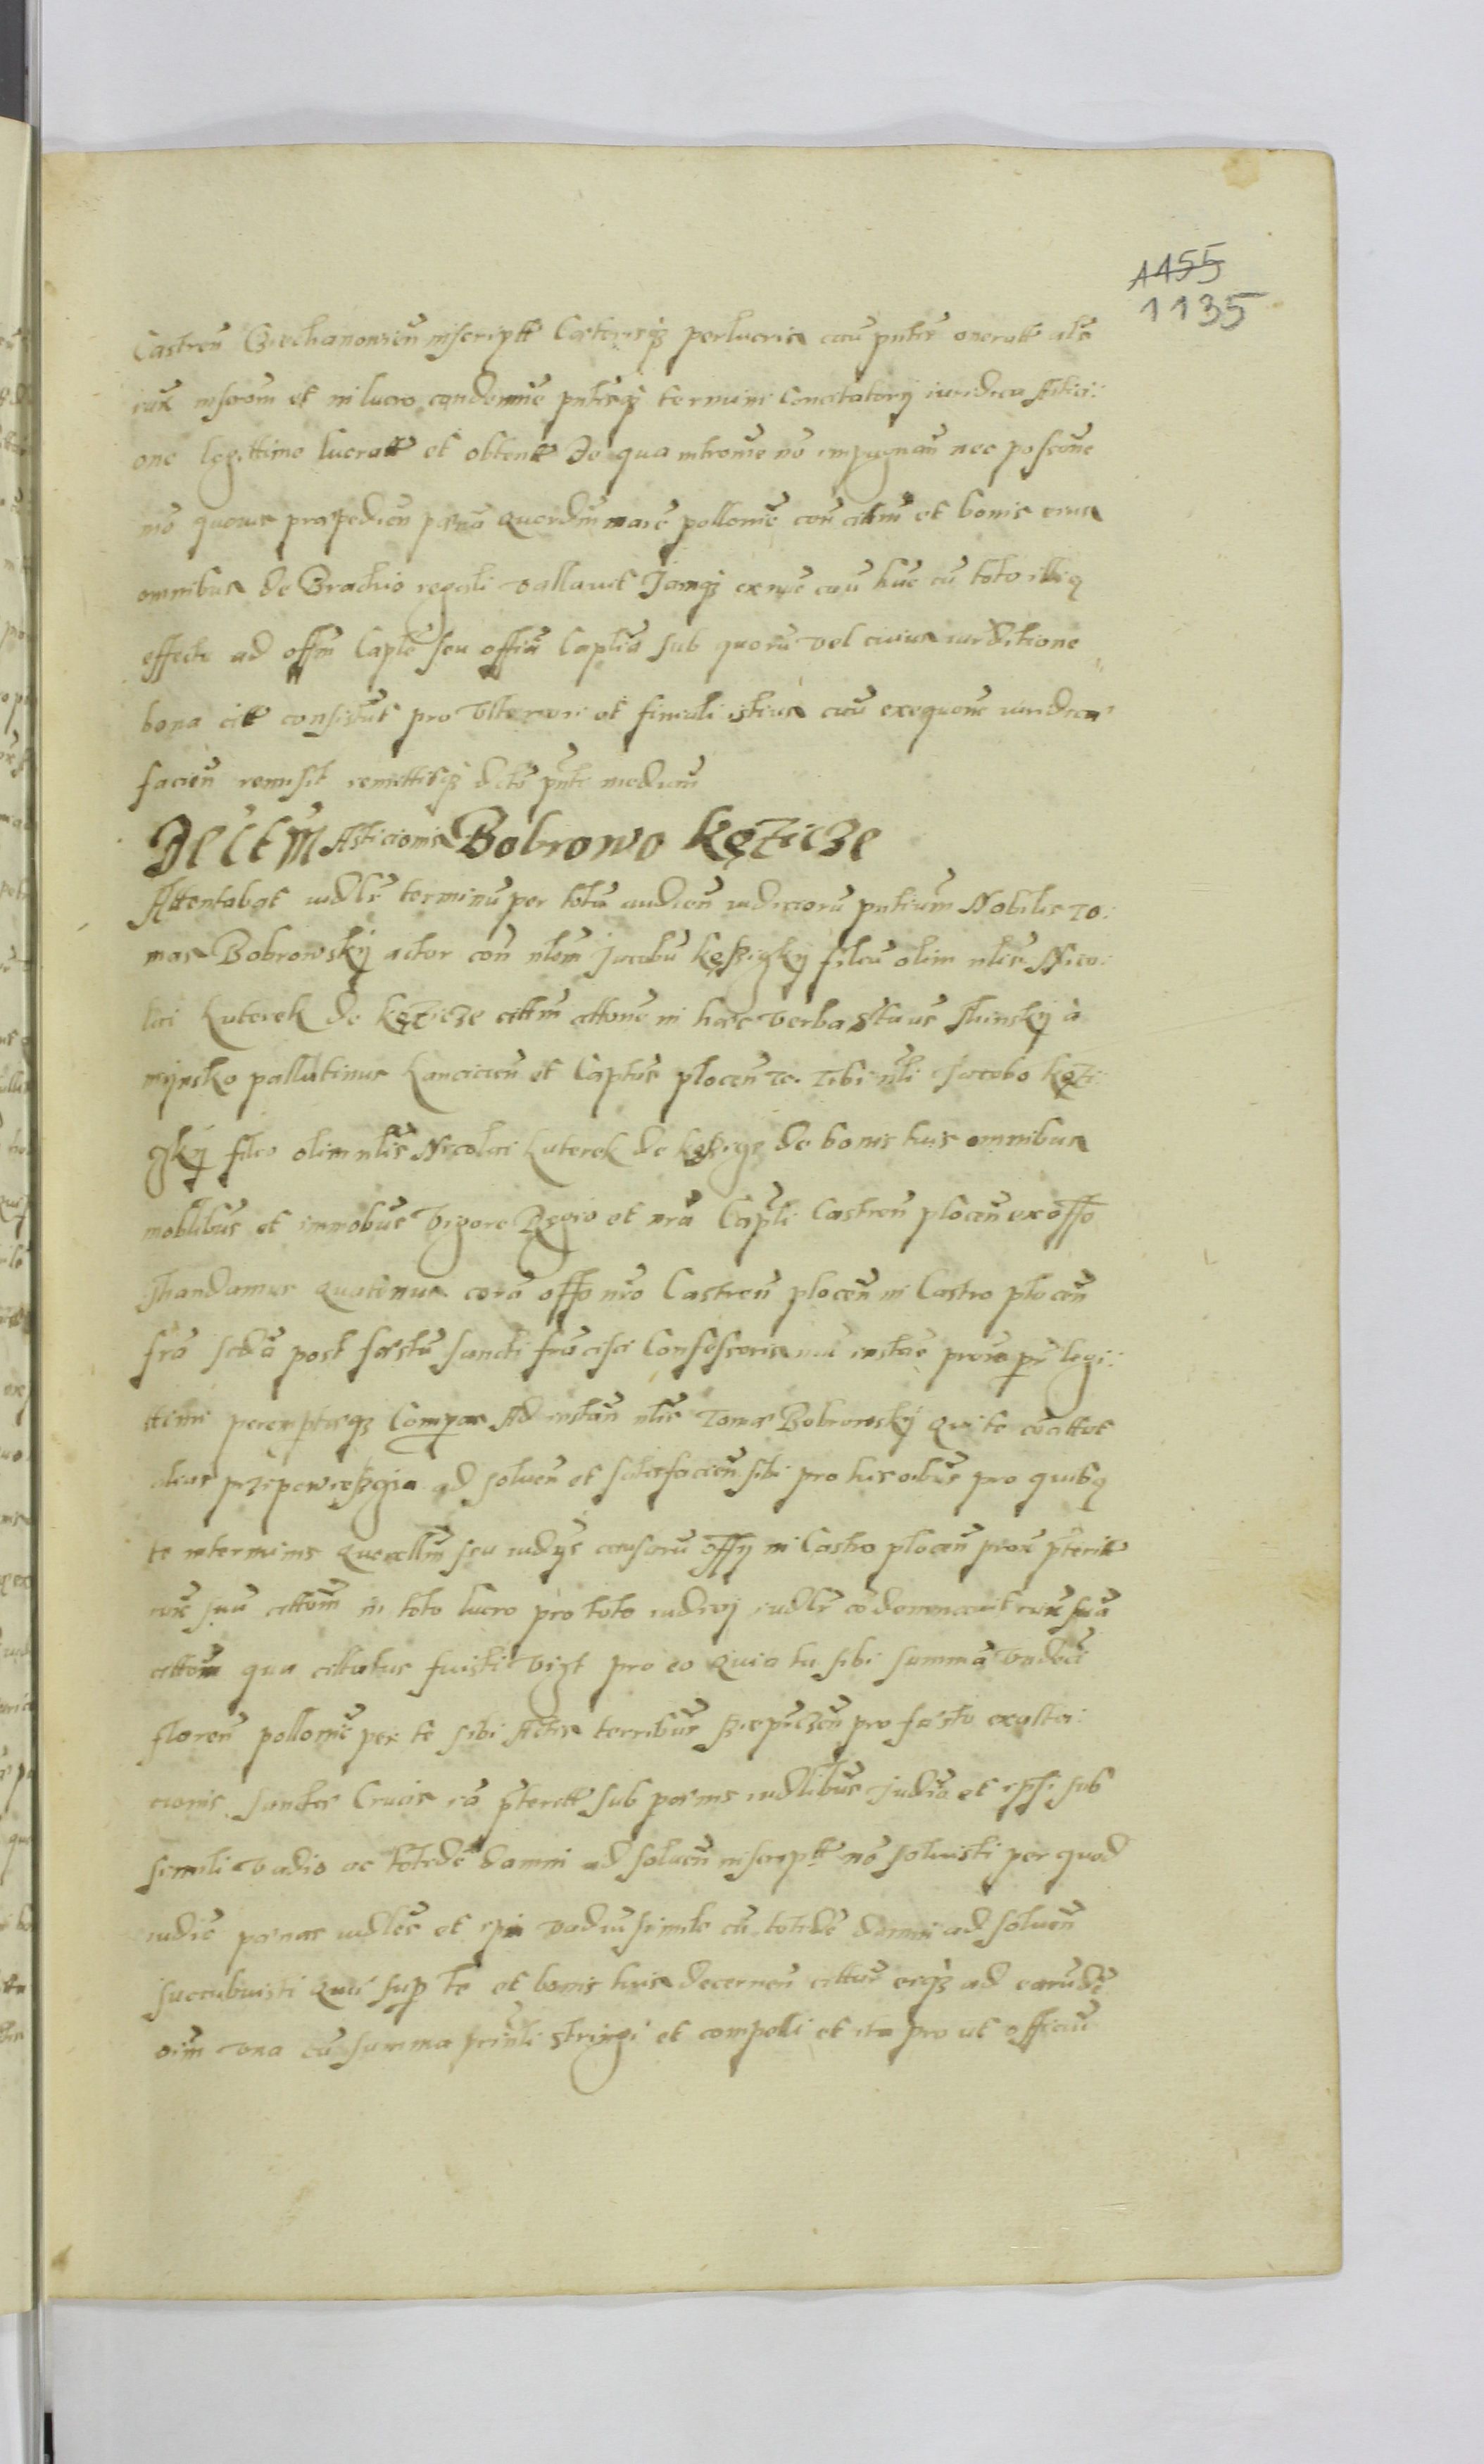 1455
1135
Castreñ Cziechanowieñ inscriptt Caeterisq3 perlucris cau pntis oneratt als
iux inscrom et in lucro condemnē pntisq3 termini Concitatorij iuridica Astici:
one legittime lucratt et obtentt De qua introme nō impugnañ nec possōne
mō quovis praepedieñ paena Quordm marc pollonic coñ citm et bonis eius
omnibus de Brachio regali vallavit Jamq3 ex nūc cau huc cū toto illiq
effectu ad offm Caple seu offia Caplia sub quorū vel cuius iurditione
bona citt consistūt pro Ulteriori et finali istius cau exequone iuridica
facień remisit remittitq3 dcto pnti mediañ
Decm Asticionis Bobrowo Kęzicze
Attentabat iudlr terminū per totā audieñ iudiciorū pntium Nobilis To:
mas Bobrowskij actor coñ nlem Jacobū Kęssiczkij filiū olim nlis Nico:
lai Kuterek de Kęzicze cittm cittone in haec verba Staūs Minskij à
mijnsko pallatinus Lancicieñ et Captūs ploceñ Tc. Tibi nli Jacobo Kęzi
czkij filio olim nlis Nicolai Kuterek de Kęssicze de bonis tuis omnibus
moblibus et immobus Vigore Regio et nrā Capli Castreñ ploceñ ex offo
Mandamus Quatenus corā offo nro Castreñ ploceñ in Castro ploceñ
frā scdā post faestū sancti francisci Confessoris nūc instañ prox pr legi:
ttime peremptieq3 Compar Ad instañ nlis Tomae Bobrowskij Qui te cōcittat
alias przipowieszcza ad solveñ et satisfacieñ sibi pro his oibus pro quibq
te in terminis Querellm seu iudijs causarū offij in Castro ploceñ prox pteritt
iux suū cittom in toto lucro pro toto iudicij iudlr cōdemnavit iux suā
cittom qua cittatus fuisti Vizt pro eo Quia tu sibi summā Undeci
floreñ pollonic per te sibi Actis terribus Szieprczeñ pro faesto exaltai:
cionis sanctae Crucis rō pteritt sub paenis iudlibus Judio et ipsi sub
simili vadio ac totidē damni ad solveñ inscriptt nō solvisti per quod
iudic paenas iudles et ipi vadiū simile cū totidē damni ad solveñ
succubuisti Quas sup te et bonis tuis decerneñ cittur eiq3 ad earūdē
oim una cū summa princli stringi et compelli et ita pro ut officiū